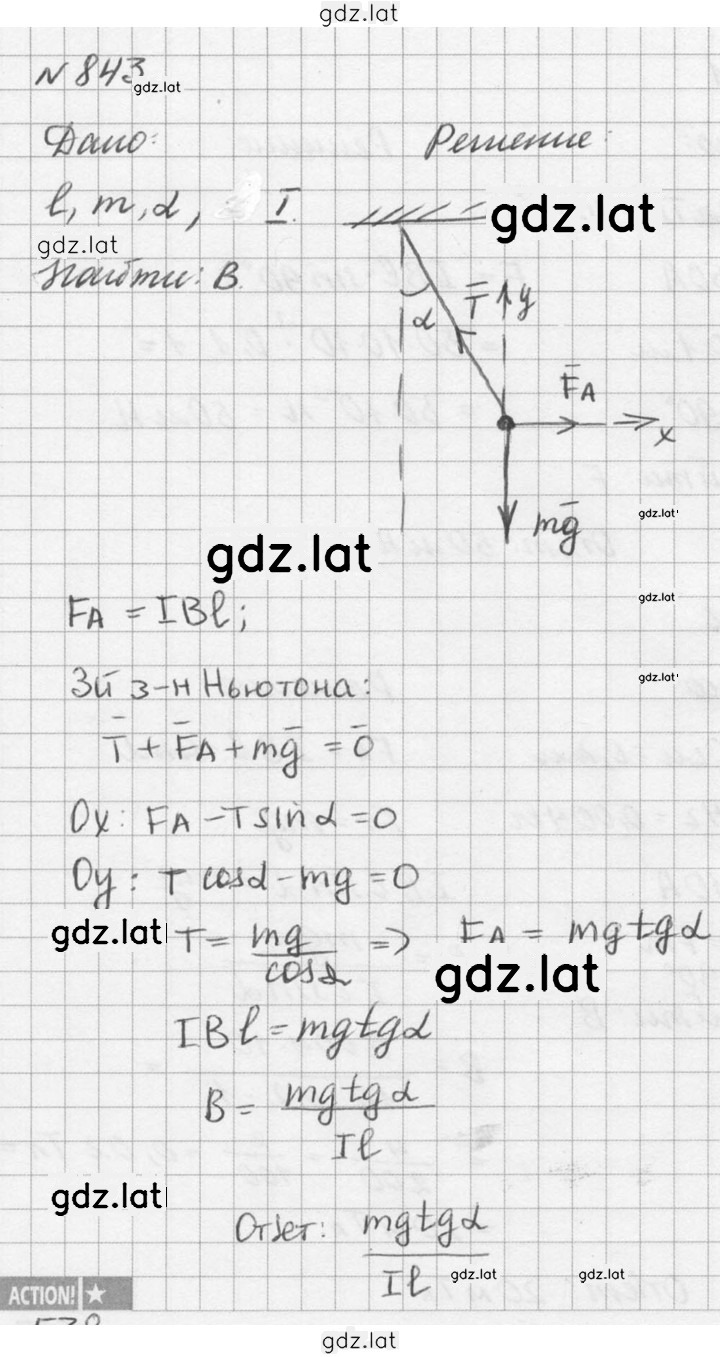 gdz.lat
N 843
gdz.lat
Дано:
Решение:
l, m, α, I.
gdz.lat
gdz.lat
Найти: B.
α
T̄
y
F̄A
x
mḡ
gdz.lat
gdz.lat
FA = IBl;
gdz.lat
3й з-н Ньютона:
gdz.lat
T̄ + F̄A + mḡ = 0̄
Ox: FA - T sin α = 0
Oy: T cosα - mg = 0
gdz.lat
T = mg/cosα => FA = mgtgα
gdz.lat
IBl = mgtgα
B = mgtgα/Il
gdz.lat
Ответ: mgtgα/Il
gdz.lat
gdz.lat
ACTION!
gdz.lat